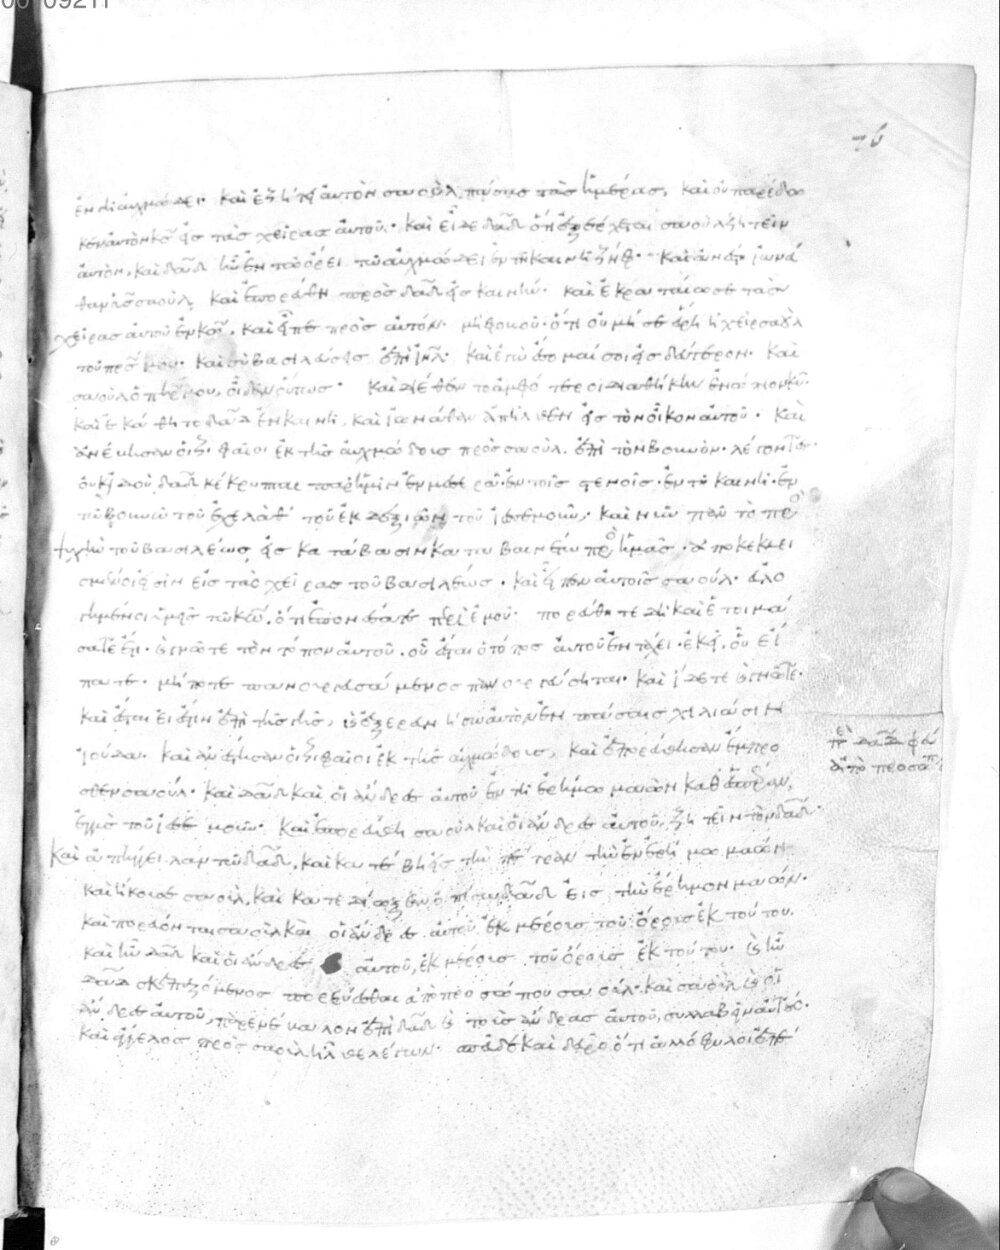 ἐν τῆ αὐχμώδει· καὶ ἐζήτει αὐτὸν σαοὺλ πάσας τὰς ἡμέρας, καὶ οὐ παρέδω
κεν αὐτὸν κς εἰς τὰς χεῖρας αὐτοῦ· καὶ εἶδε δαδ ὅτι ἐξέρχεται σαοὺλ ζητεῖν
αὐτὸν, καὶ δαδ ἦν ἐν τῶ ὄρει τῶ αὐχμώδει ἐν τῆ καινῆ ζὴφ· καὶ ἀνέστη ἰωνά
θαν υἱὸς σαοὺλ, καὶ ἐπορεύθη πρὸς δαδ εἰς καινήν· καὶ ἐκραταίωσε τὰς
χεῖρας αὐτοῦ ἐν κω, καὶ εἶπε πρὸς αὐτόν· μὴ φοβοῦ· ὅτι οὐ μὴ σε εὕρη ἡ χεὶρ σαοὺλ
τοῦ πρς μου· καὶ σὺ βασιλεύσεις ἐπὶ ιηλ· καὶ ἐγὼ ἔσομαί σοι εἰς δεύτερον· καὶ
σαοὺλ ὁ πηρ μου, οἶδεν οὕτως· καὶ διέθεντο ἀμφότεροι διαθήκην ἐνώπιον κυ·
καὶ ἐκάθητο δαδ ἐν καινῆ, καὶ ἰωνάθαν ἀπῆλθεν εἰς τὸν οἶκον αὐτοῦ· καὶ
ἀνέβησαν οἱ ζιφαῖοι ἐκ τῆς αὐχμώδους πρὸς σαοὺλ ἐπὶ τὸν βουνὸν· λέγοντες·
οὐκ ἰδοὺ δαδ κέκρυπται παρ' ἡμῖν ἐν μεσερὰ· ἐν τοῖς στενοῖς· ἐν τῆ καινῆ· ἐν
τῶ βουνῶ τοῦ ἐχελὰθ τοῦ ἐκ δεξιῶν τοῦ ἰεσεμοῦν· καὶ νῦν πᾶν τὸ πρὸς
ψυχὴν τοῦ βασιλέως εἰς κατάβασιν καταβαινέτω πρὸς ἡμᾶς· ἀποκέκλει
σιν εἰς τὰς χεῖρας τοῦ βασιλέως· καὶ εἶπεν αὐτοῖς σαούλ· εὐλο
γημένοι ὑμεῖς τῶ κω, ὅτι ἐπονέσατε περὶ ἐμοῦ· πορεύθητε δὴ καὶ ἑτοιμά
σατε ἔτι· καὶ γνῶτε τὸν τόπον αὐτοῦ· οὗ ἔσται ὁ τόπος αὐτοῦ ἐν τάχει· ἐκεῖ, οὗ εἴ
πατε· μή ποτε πανουργευσάμενος πανουργεύσηται· καὶ ἴδετε καὶ γνῶτε·
καὶ ἔσται εἰ ἔστιν ἐπὶ τῆς γῆς, καὶ ἐξερευνήσω αὐτὸν ἐν πάσαις χιλιάσιν
ἰούδα· καὶ ἀνέστησαν οἱ ζιφαῖοι ἐκ τῆς αὐχμώδους, καὶ ἐπορεύθησαν ἔμπρο
σθεν σαούλ· καὶ δαδ καὶ οἱ ἄνδρες αὐτοῦ ἐν τῆ ἐρήμω μαὼν καθ' ἑσπέραν,
ἐκ τοῦ ἰεσεμοῦν· καὶ ἐπορεύθη σαοὺλ καὶ οἱ ἄνδρες αὐτοῦ, ζητεῖν τὸν δαδ·
καὶ ἀπήγγειλαν τῶ δαδ, καὶ κατέβη εἰς τὴν πέτραν τὴν ἐν ἐρήμω μαών·
καὶ ἤκουσε σαοὺλ, καὶ κατεδίωξεν ὀπίσω δαδ εἰς τὴν ἔρημον μαών·
καὶ πορεύονται σαοὺλ καὶ οἱ ἄνδρες αὐτοῦ, ἐκ μέρους τοῦ ὄρους ἐκ τούτου·
καὶ ἦν δαδ καὶ οἱ ἄνδρες αὐτοῦ, ἐκ μέρους τοῦ ὄρους ἐκ τούτου· καὶ ἦν
δαδ σκεπαζόμενος πορεύεσθαι ἀπὸ προσώπου σαούλ· καὶ σαοὺλ καὶ οἱ
ἄνδρες αὐτοῦ, παρενέβαλον ἐπὶ δαδ καὶ τοὺς ἄνδρας αὐτοῦ, συλλαβεῖν αὐτούς·
καὶ ἄγγελος πρὸς σαοὺλ ἦλθε λέγων· σπεῦδε καὶ δεῦρο ὅτι ἀλλόφυλοι ἐπέ